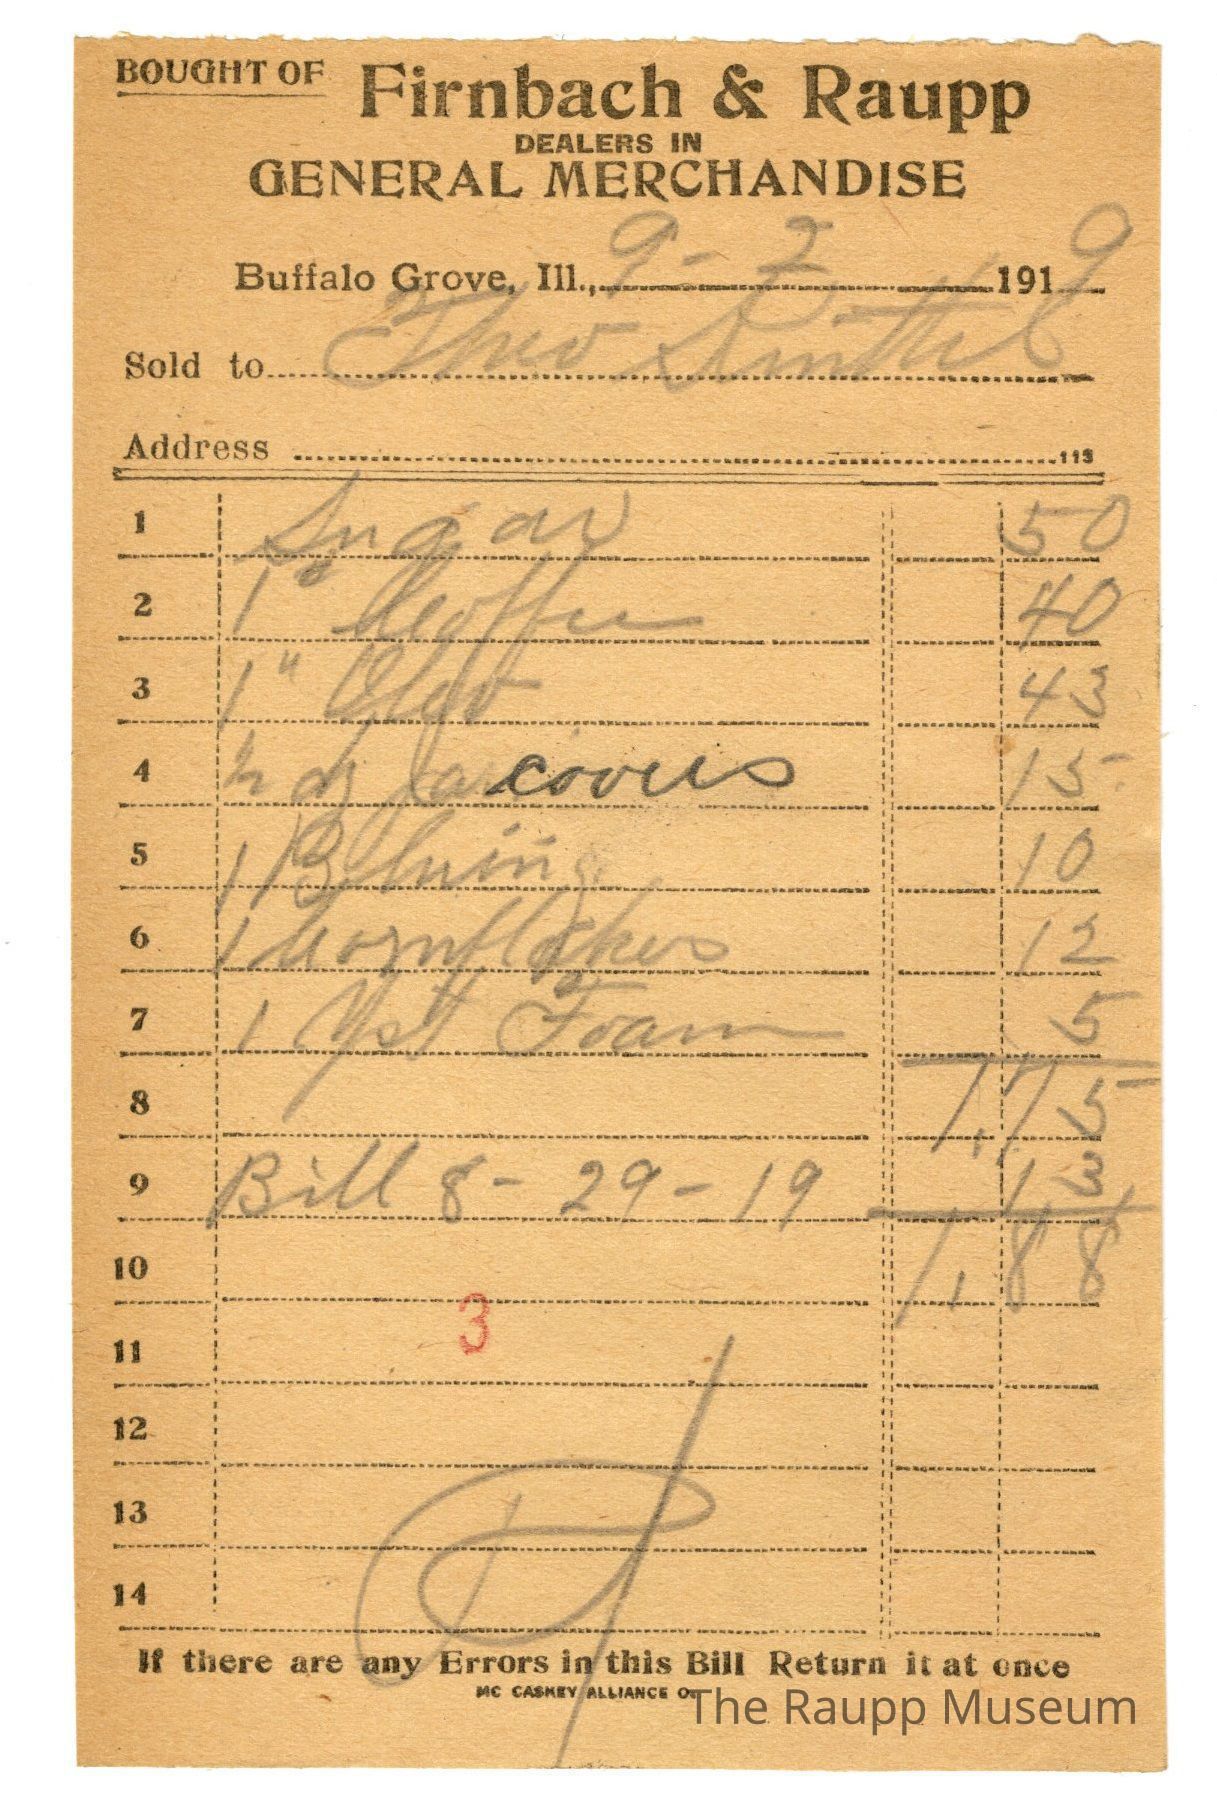 BOUGHT OF Firnbach & Raupp
DEALERS IN
GENERAL MERCHANDISE
Buffalo Grove, Ill., 9 - 2 1919
Sold to Theo
Address 113
1 Sugar 50
2 1 " Coffee 40
3 1 " Oleo 43
4 ½ dz Jar covers 15
5 1 B Bluing 10
6 1 Cornflakes 12
7 1 Yst Foam 5
8 1.75
9 Bill 8 - 29 - 19 13
10 1.88
3
11
12
13
14
If there are any Errors in this Bill Return it at once
MC CASKEY ALLIANCE O.
The Raupp Museum